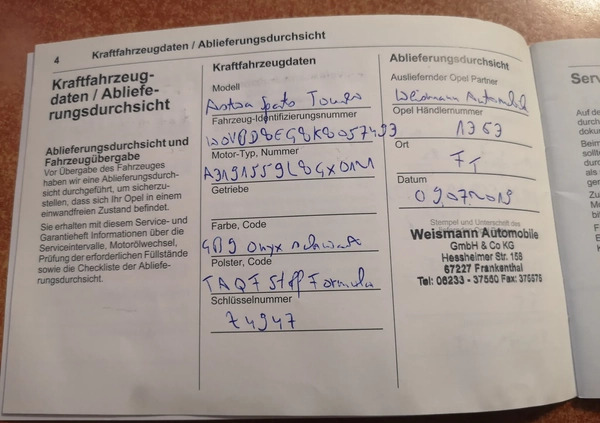 4
Kraftfahrzeugdaten / Ablieferungsdurchsicht
Kraftfahrzeug-
daten / Abliefe-
rungsdurchsicht
Ablieferungsdurchsicht und
Fahrzeugübergabe
Vor Übergabe des Fahrzeuges
haben wir eine Ablieferungsdurch-
sicht durchgeführt, um sicherzu-
stellen, dass sich Ihr Opel in einem
einwandfreien Zustand befindet.
Sie erhalten mit diesem Service- und
Garantieheft Informationen über die
Serviceintervalle, Motorölwechsel,
Prüfung der erforderlichen Füllstände
sowie die Checkliste der Abliefe-
rungsdurchsicht.
Kraftfahrzeugdaten
Modell
Astra Sports Tourer
Fahrzeug-Identifizierungsnummer
Motor-Typ, Nummer
Getriebe
Farbe, Code
onyx schwarz
Polster, Code
TAQF Stoff Formula
Schlüsselnummer
Z4947
Ablieferungsdurchsicht
Ausliefernder Opel Partner
Weismann Automobile
Opel Händlernummer
1363
Ort
FT
Datum
Stempel und Unterschrift des
Weismann Automobile
GmbH & Co KG
Hessheimer Str. 158
67227 Frankenthal
Tel: 06233 - 37560 Fax: 375676
Serv